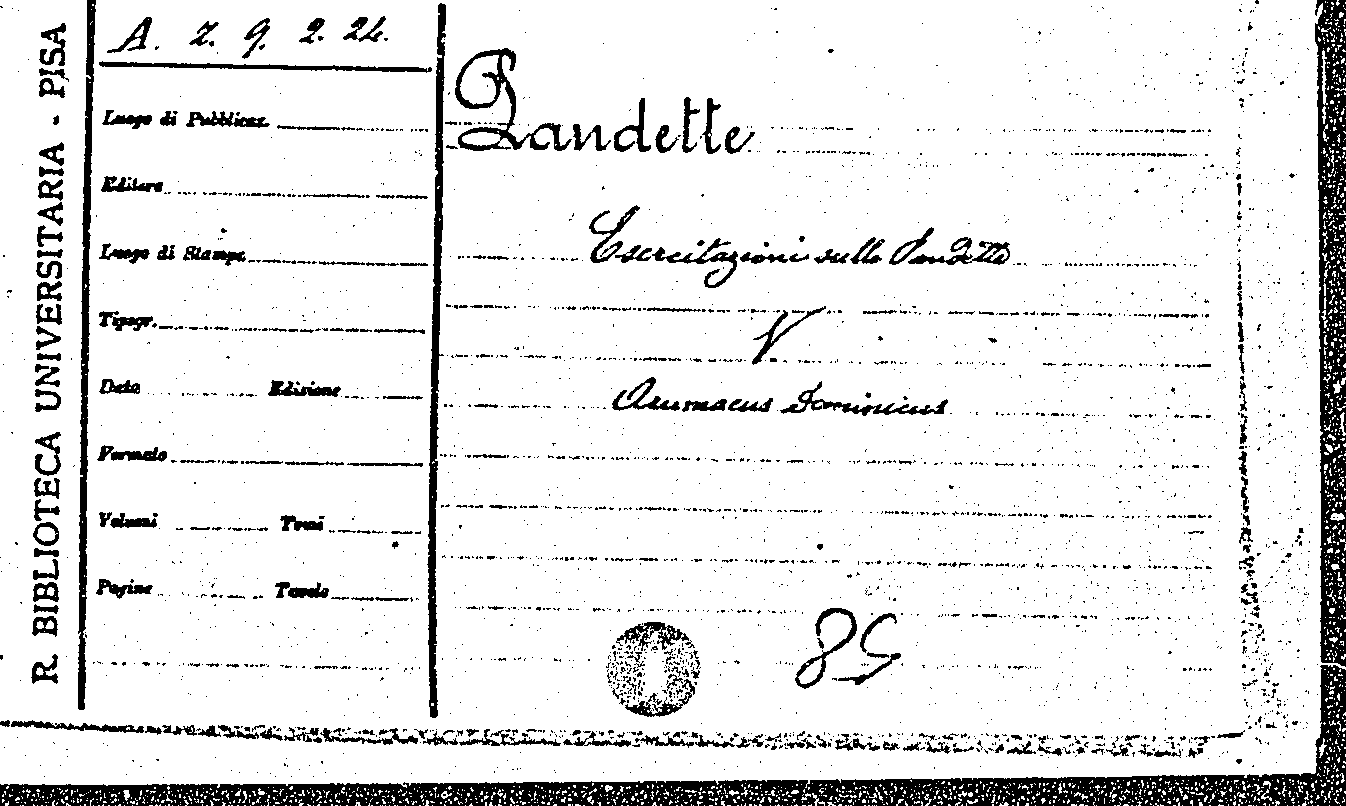 R. BIBLIOTECA UNIVERSITARIA - PISA
A. z. 9. 2. 24.
Luogo di Pubblicaz.
Editore
Luogo di Stampa
Tipogr.
Data Edizione
Formato
Volumi Tomi
Pagine Tavole
Pandette
Esercitazioni sulle Pandette
V
Arumaeus Dominicus
85